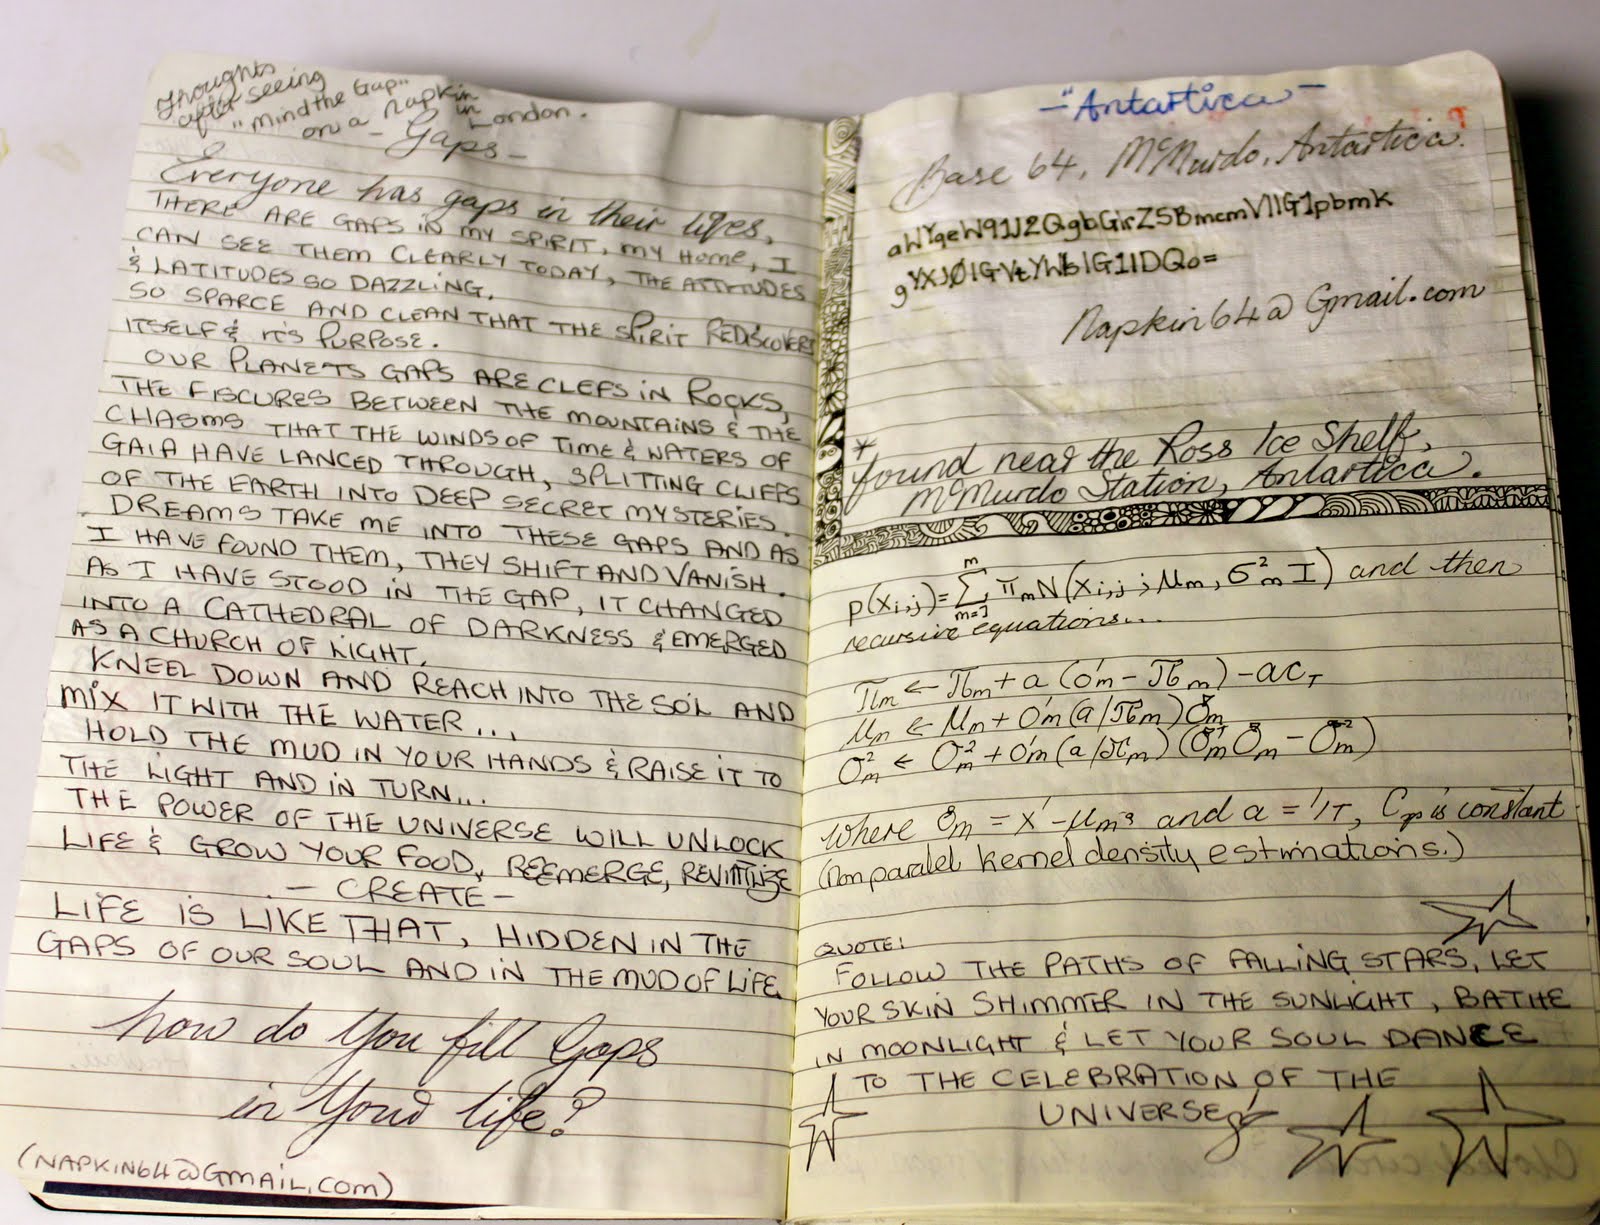 Thoughts
after seeing
"Mind the Gap"
on a Napkin
in London.
- Gaps -
Everyone has gaps in their lives,
THERE ARE GAPS IN MY SPIRIT, MY HOME, I
CAN SEE THEM CLEARLY TODAY, THE ATTITUDES
& LATITUDES SO DAZZLING.
SO SPARCE AND CLEAN THAT THE SPIRIT REDISCOVERS
ITSELF & IT'S PURPOSE.
OUR PLANETS GAPS ARE CLEFS IN ROCKS,
THE FISCURES BETWEEN THE MOUNTAINS & THE
CHASMS THAT THE WINDS OF TIME & WATERS OF
GAIA HAVE LANCED THROUGH, SPLITTING CLIFFS
OF THE EARTH INTO DEEP SECRET MYSTERIES.
DREAMS TAKE ME INTO THESE GAPS AND AS
I HAVE FOUND THEM, THEY SHIFT AND VANISH.
AS I HAVE STOOD IN THE GAP, IT CHANGED
INTO A CATHEDRAL OF DARKNESS & EMERGED
AS A CHURCH OF LIGHT.
KNEEL DOWN AND REACH INTO THE SOIL AND
MIX IT WITH THE WATER...
HOLD THE MUD IN YOUR HANDS & RAISE IT TO
THE LIGHT AND IN TURN...
THE POWER OF THE UNIVERSE WILL UNLOCK
LIFE & GROW YOUR FOOD, REEMERGE,
- CREATE -
LIFE IS LIKE THAT, HIDDEN IN THE
GAPS OF OUR SOUL AND IN THE MUD OF LIFE.
how do you fill Gaps
in your life?
(NAPKIN64@GMAIL.COM)
-"Antartica-
Base 64, McMurdo, Antartica.
Napkin64@Gmail.com
* found near the Ross Ice Shelf,
McMurdo Station, Antartica.
p(xi,j)=∑ m m=1 πmN(xi,j; μm, σ²m I) and then
recursive equations...
πm ← πm + a (o'm - πm) - acT
μm ← μm + o'm(a/πm)δm
σ²m ← σ²m + o'm(a/πm)(δ'm δm - σ²m)
Where δm = x' - μm, and a = 1/T, CT is constant
(non paralel kernel density estimations.)
QUOTE!
FOLLOW THE PATHS OF FALLING STARS, LET
YOUR SKIN SHIMMER IN THE SUNLIGHT, BATHE
IN MOONLIGHT & LET YOUR SOUL DANCE
TO THE CELEBRATION OF THE
UNIVERSE